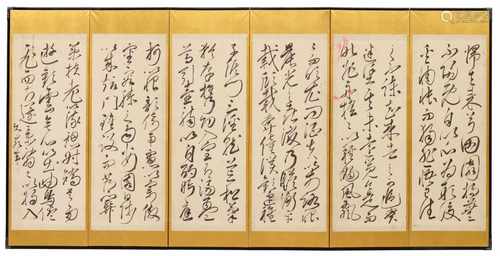 歸去來兮田園將蕪
不歸既自以心為形役
奚惆悵而獨悲悟已往
之不諫知來者之可追實
迷途其未遠覺今是而
昨非舟遙遙以輕颺風飄
而吹衣問征夫以前路恨
晨光之熹微乃瞻衡宇
載欣載奔僮僕歡迎稚
子候門三徑就荒松菊
猶存攜幼入室有酒盈
樽引壺觴以自酌眄庭
柯怡顏倚南窗以寄傲
審容膝之易安園日涉
以成趣門雖設而常關
策扶老流憩時矯首而
遐觀雲無心出岫鳥倦
飛而知還景翳翳以將入